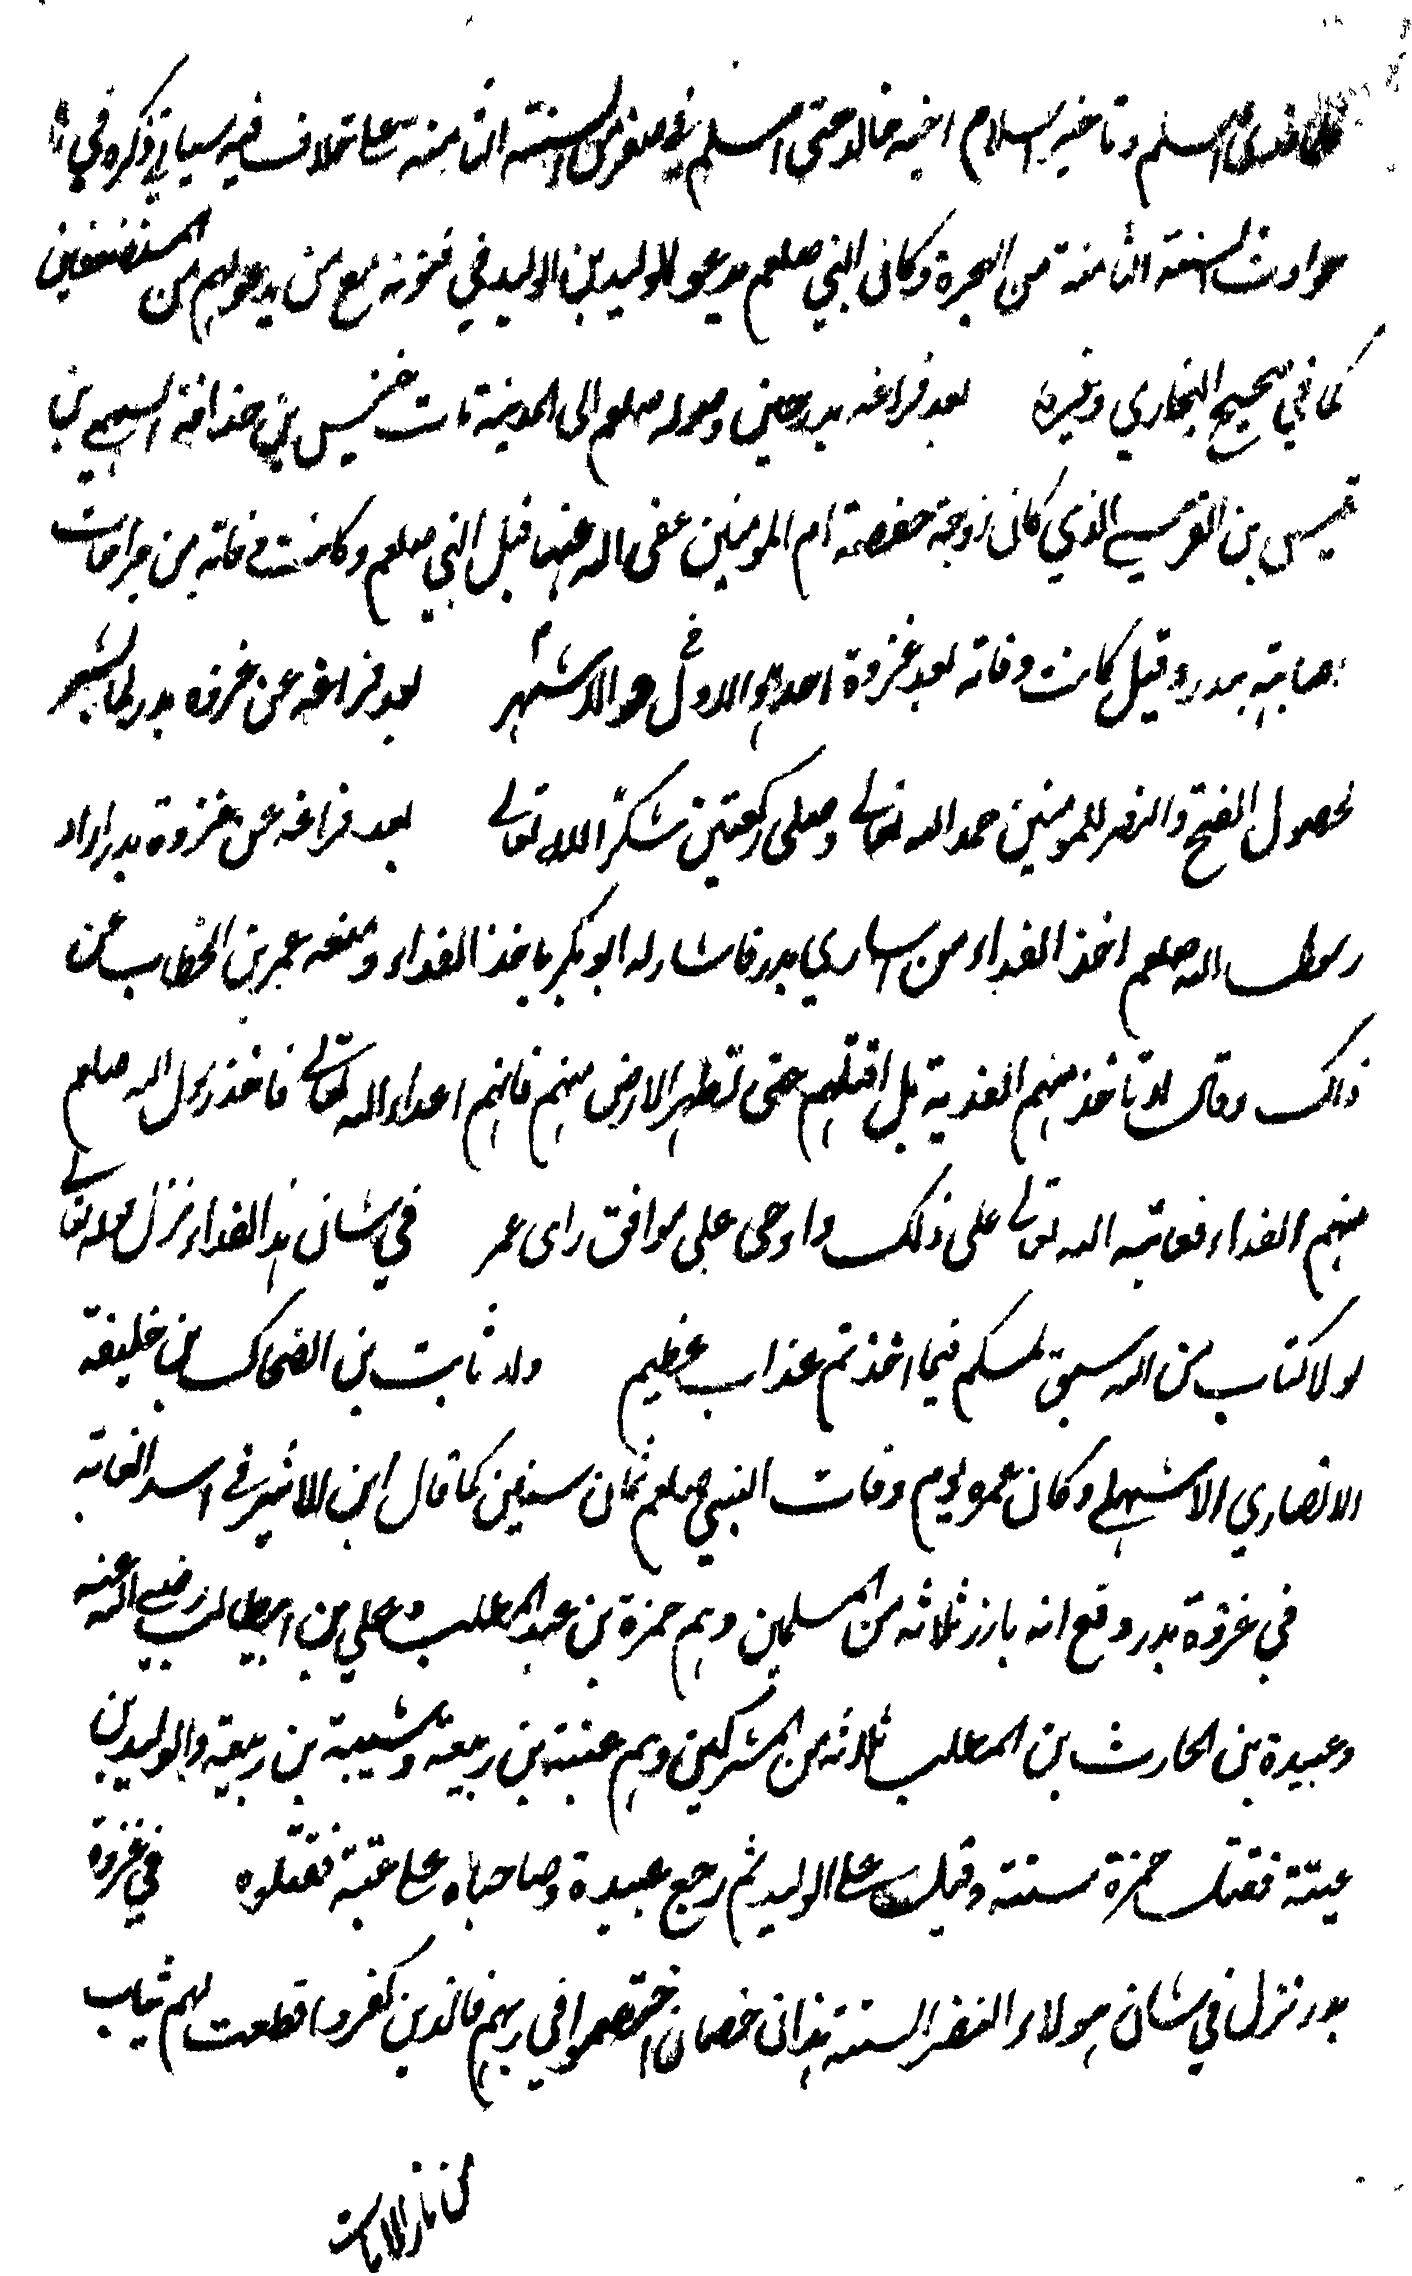 اسلم وتاخير اسلام اخيه خالد حتى اسلم في صفر من السنة الثامنة على خلاف فيه سياتي ذكره في
حوادث السنة الثامنة من الهجرة وكان النبي صلعم يدعو للوليد بن الوليد في قنوته مع من يدعو لهم من المستضعفين
كما في صحيح البخاري وغيره بعد فراغه بدر حين وصوله صلعم الى المدينة مات خنيس بن حذافة السهمي بن
قيس بن القرسي الذي كان زوجة حفصة ام المومنين عفى اله عنها قبل النبي صلعم وكانت وفاته من جراحات
اصابته ببدر وقيل كانت وفاته بعد غزوة احد والاول هو الاشهر بعد فراغه عن غزوه بدر لما بشر
لحصول الفتح والنصر للمومنين حمد الله تعالى وصلى ركعتين شكرا لله تعالى بعد فراغه عن غزوة بدر اراد
رسول اله صلعم اخذ الفداء من اسارى بدر فاشار له ابو بكر باخذ الفداء ومنعه عمر بن الخطاب عن
ذلك وقال لا تاخذ منهم الفدية بل اقتلهم حتى تطهر الارض منهم فانهم اعداء اله تعالى فاخذ رسول اله صلعم
منهم الفداء فعاتبه اله تعالى على ذلك واوحى على موافق راى عمر في شان هذا الفداء نزل قوله تعالى
لولا كتاب من اله سبق لمسكم فيما اخذتم عذاب عظيم ولد ثابت بن الضحاك بن خليفة
الانصاري الاشهلي وكان عمره يوم وفات النبي صلعم ثمان سنين كما قال ابن الاثير في اسد الغابه
في غزوة بدر وقع انه بارز ثلاثه من المسلمين وهم حمزة بن عبد المطلب وعلي بن ابيطالب رضي اله عنه
وعبيدة بن الحارث بن المطلب ثلاثه من المشركين وهم عتبة بن ربيعة وشيبة بن ربيعه والوليد بن
عتبة فقتل حمزة شيبة وقتل على الوليد ثم رجع عبيدة وصاحباه على عتبة فقتلوه في غزوة
بدر نزل في شان هولاء النفر الستة هذان خصمان اختصموا في ربهم فالذين كفروا قطعت لهم ثياب
من نار الايات